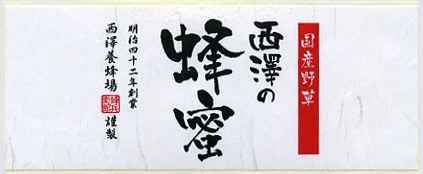 国産野草
西澤の
蜂蜜
明治四十二年創業
西澤養蜂場
謹製